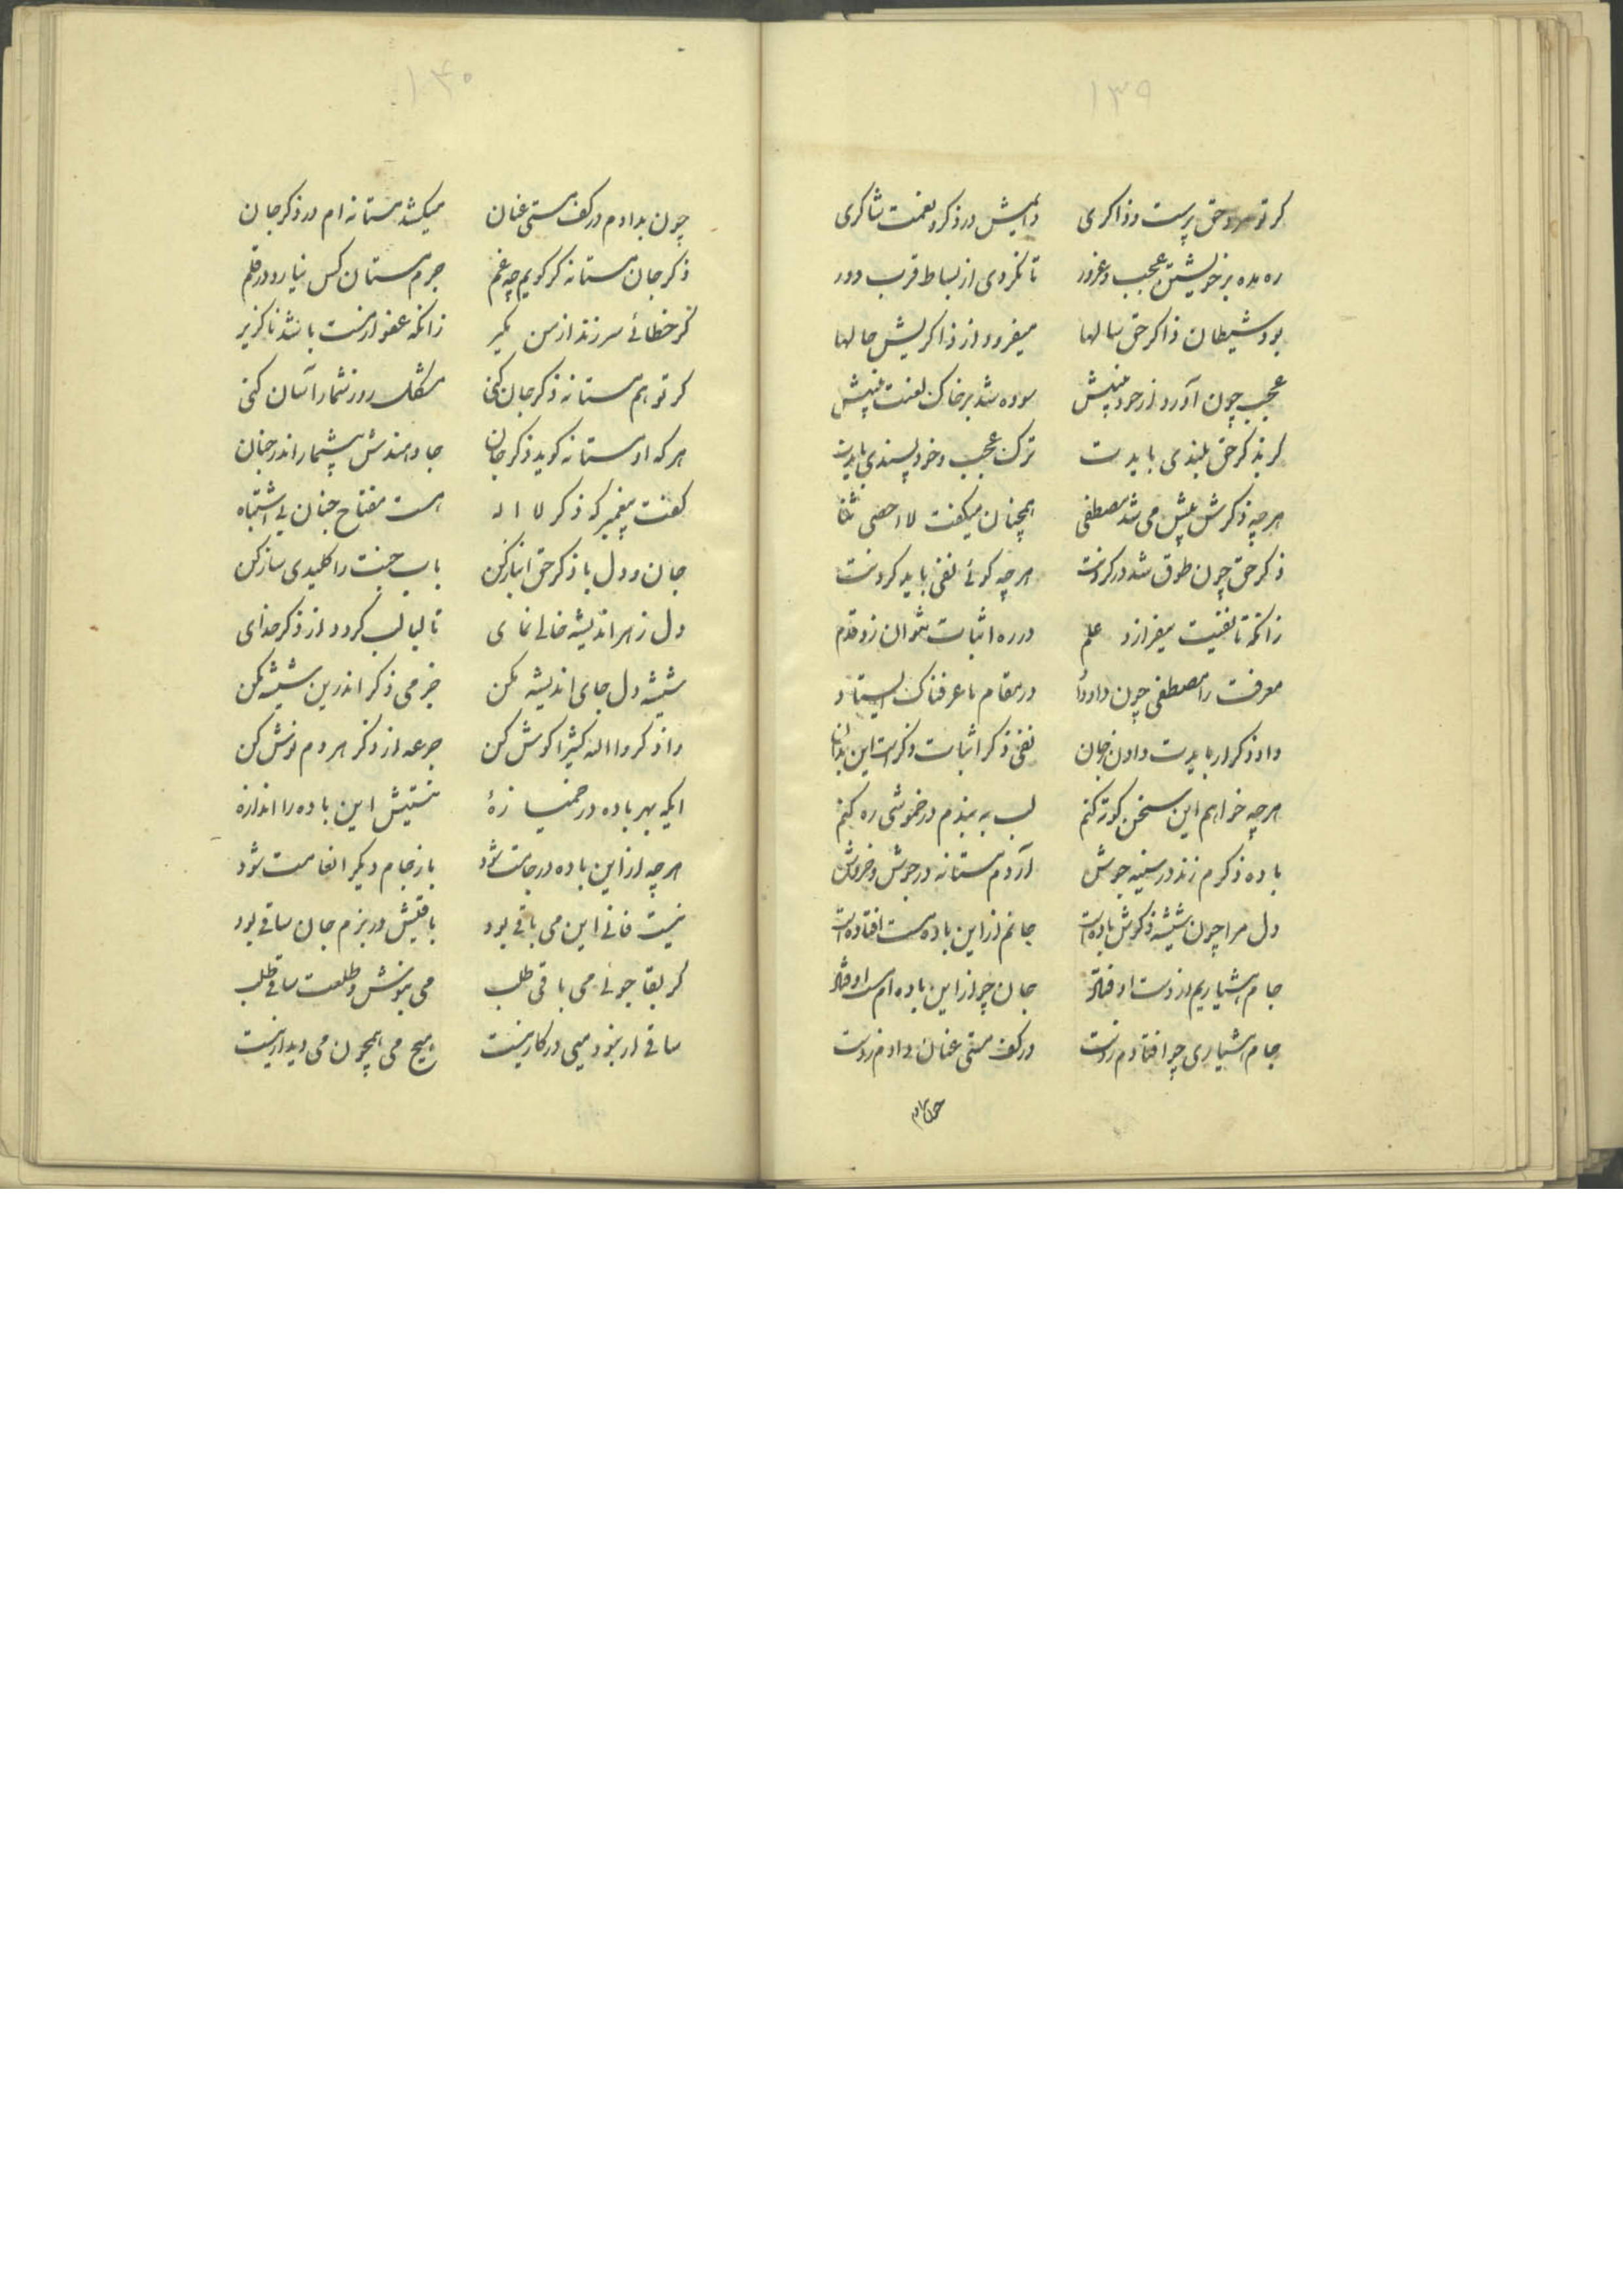 ۱۳۹
کر تو مرد حق پرست و ذاکری دایمش در ذکر و نعمت شاکری
ره مده بر خویشتن عجب و غرور تا نکردی از بساط قرب دور
بود شیطان ذاکر حق سالها میفزود از ذاکریش حالها
عجب چون آورد از خود بینیش سوده شد بر خاک لعنت بینیش
کر بذکر حق بلندی بایدت ترک عجب و خود پسندی بایدت
هر چه ذکرش بیش می شد مصطفی همچنان میکفت لا احصی ثنا
ذکر حق چون طوق شد در کردنت هر چه کوئی نفی باید کردنت
زانکه تا نفیت نیفرازد علم در ره اثبات نتوان زد قدم
معرفت را مصطفی چون داد داد در مقام ما عرفناک ایستاد
داد ذکر ار بایدت دادن بجان نفی ذکر اثبات ذکر است این بدان
هر چه خواهم این سخن کوته کنم لب به بندم در خموشی ره کنم
باده ذکرم زند در سینه جوش آردم مستانه در جوش و خروش
دل مرا چون شیشه ذکرش باده است جانم از این باده مست افتاده است
جام هشیاریم از دست اوفتاد جان چو از این باده ام مست اوفتاد
جام هشیاری چو افتادم ز دست در کف مستی عنان دادم ز دست
چون بدادم
۱۴۰
چون بدادم در کف مستی عنان میکشد مستانه ام در ذکر جان
ذکر جان مستانه کر کویم چه غم جرم مستان کس نیارد در قلم
کر خطائی سر زند از من مکیر زانکه عفو از مست باشد ناکزیر
کر تو هم مستانه ذکر جان کنی مشکل روز شمار آسان کنی
هر که او مستانه کوید ذکر جان جا دهندش بیشمار اندر جنان
کفت پیغمبر که ذکر لا اله هست مفتاح جنان بی اشتباه
جان و دل با ذکر حق انباز کن باب جنت را کلیدی ساز کن
دل ز هر اندیشه خالی نمای تا لبالب کردد از ذکر خدای
شیشه دل جای اندیشه مکن جز می ذکر اندرین شیشه مکن
واذکروا الله کثیرا کوش کن جرعه از ذکر هر دم نوش کن
ایکه بهر باده در خمیازهٔ نیستیش این باده را اندازه
هر چه از این باده در جامت شود باز جام دیکر انعامت شود
نیست فانی این می باقی بود باقیش در بزم جان ساقی بود
کر بقا جوئی می باقی طلب می بنوش و طلعت ساقی طلب
ساقی ار نبود میی در کار نیست هیچ می همچون می دیدار نیست